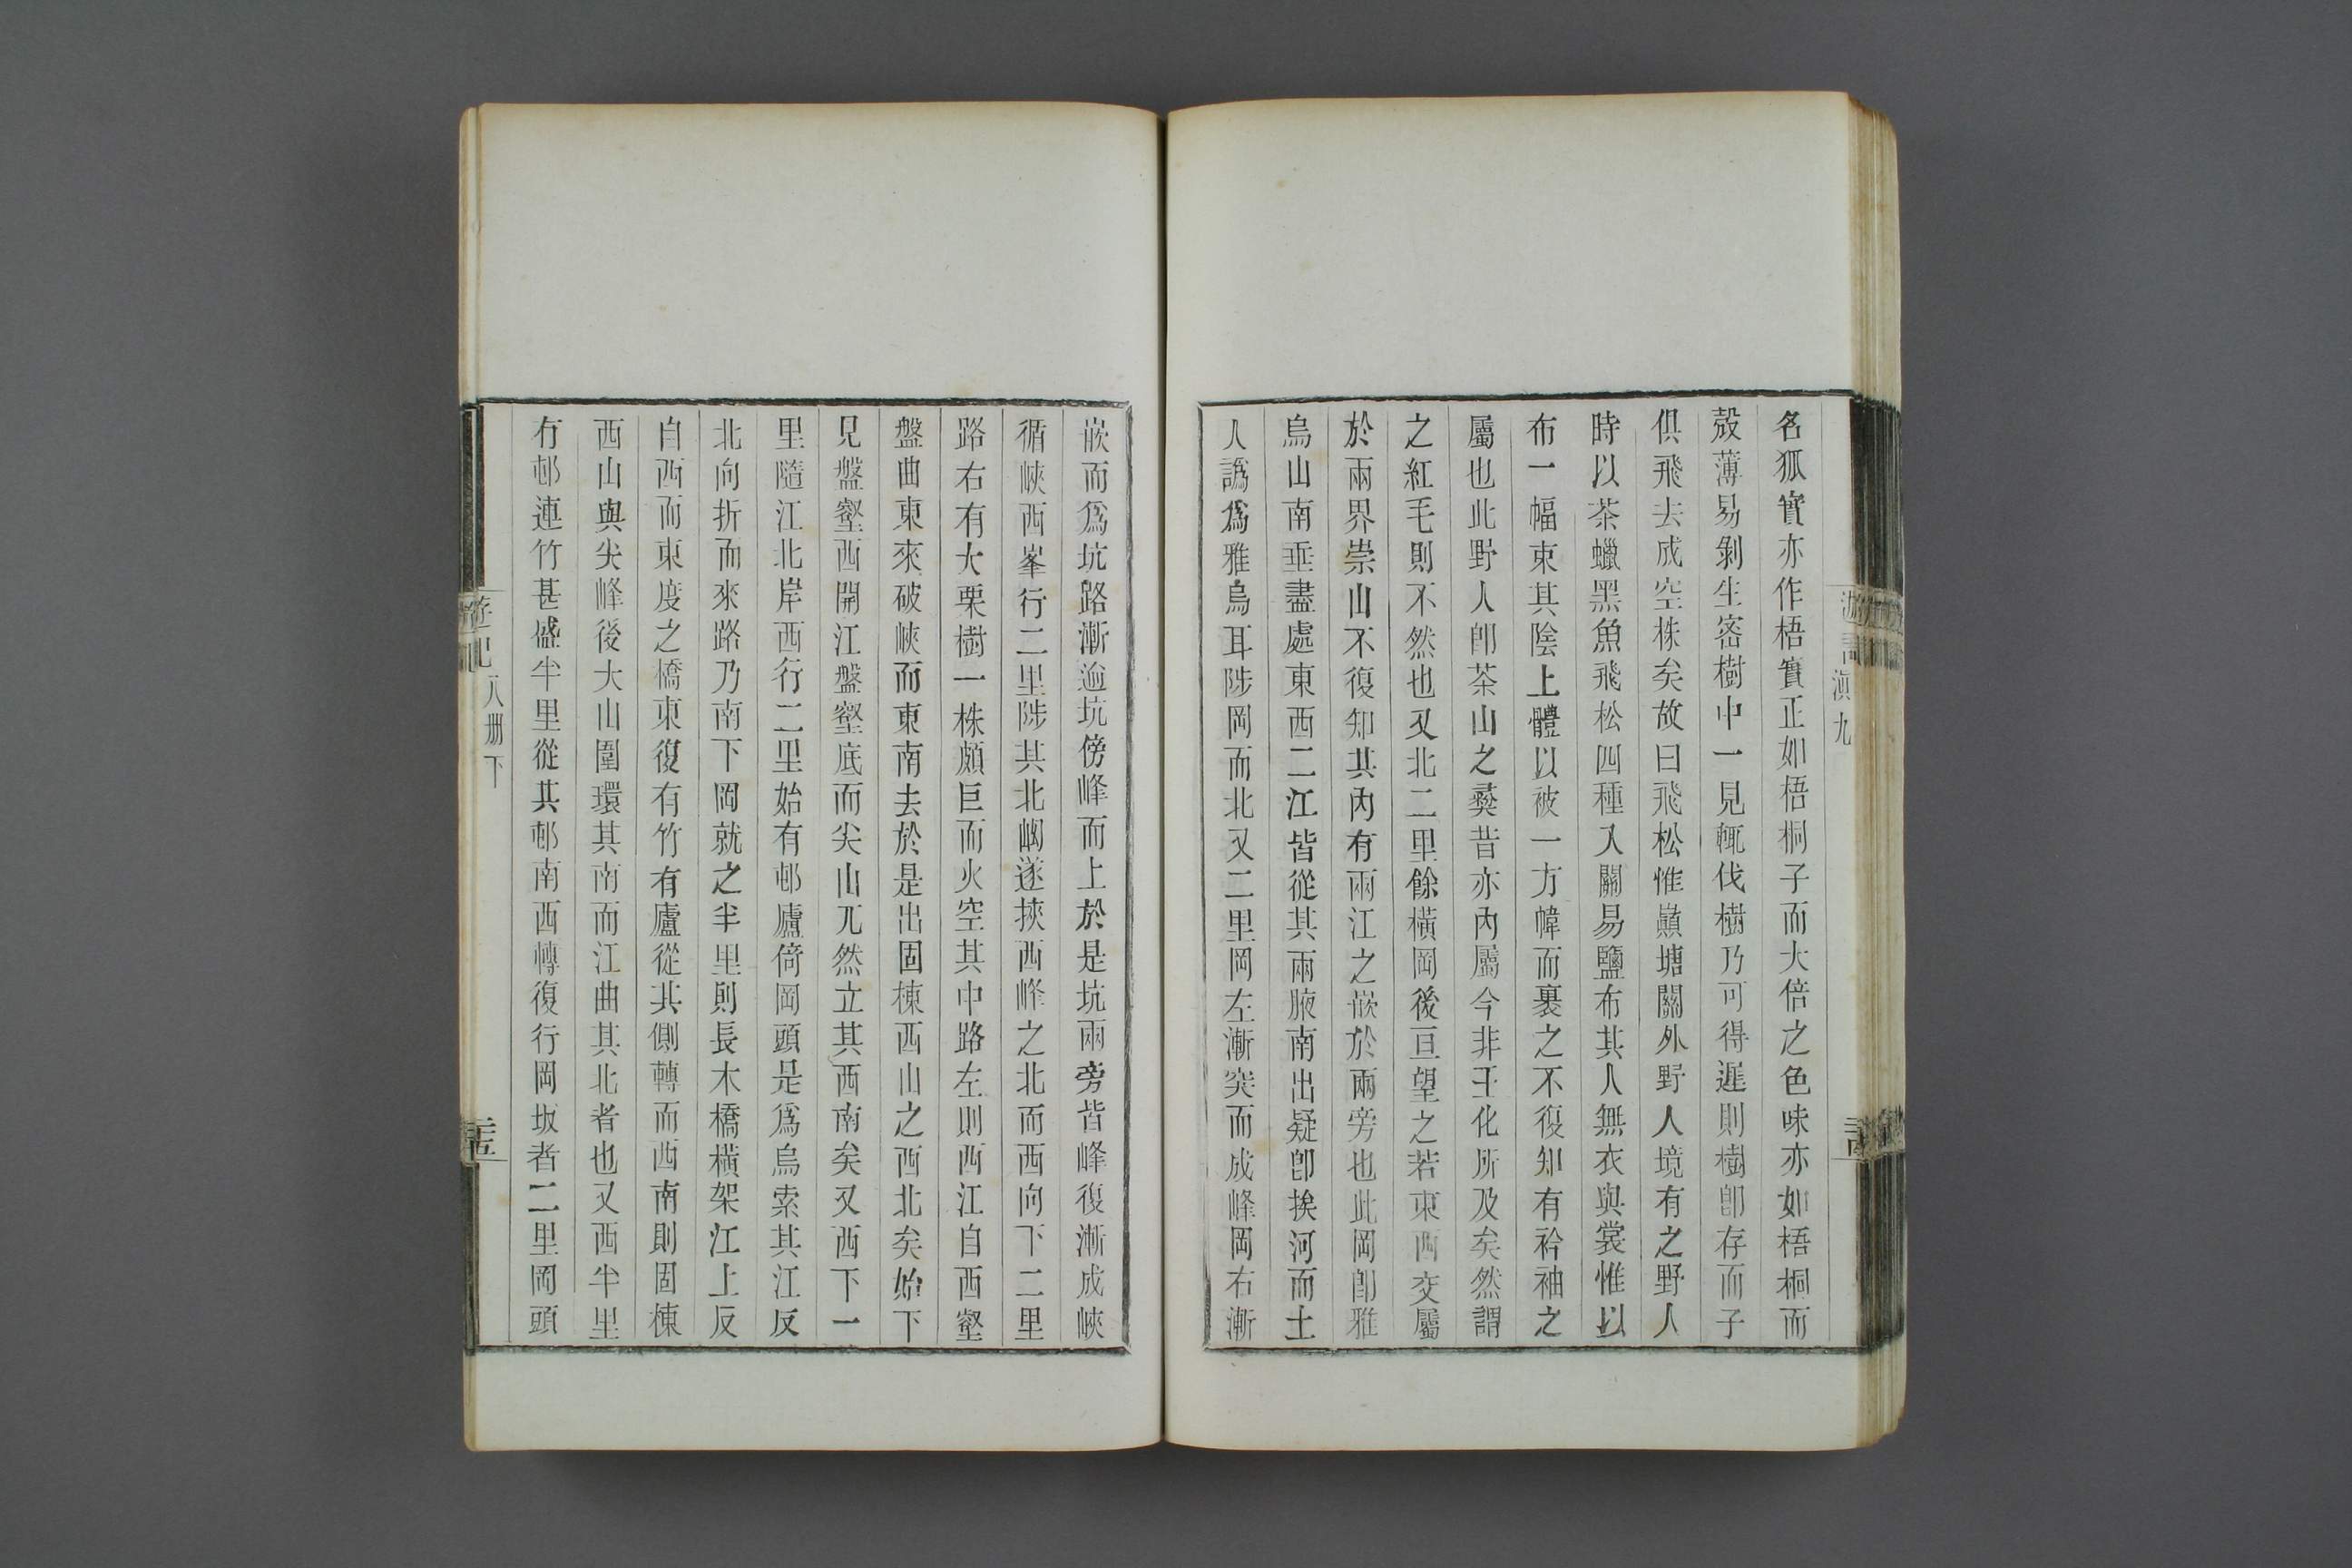 名狐實亦作梧實正如梧桐子而大倍之色味亦如梧桐而
殼薄易剝生密樹中一見輒伐樹乃可得遲則樹卽存而子
俱飛去成空株矣故曰飛松惟巔塘關外野人境有之野人
時以茶蠟黑魚飛松四種入關易鹽布其人無衣與裳惟以
布一幅束其陰上體以被一方幃而裹之不復知有衿袖之
屬也此野人卽茶山之彝昔亦內屬今非王化所及矣然謂
之紅毛則不然也又北二里餘橫岡後亘望之若東西交屬
於兩界崇山不復知其內有兩江之嵌於兩旁也此岡卽雅
烏山南垂盡處東西二江皆從其兩腋南出疑卽挨河而土
人譌爲雅烏耳陟岡而北又二里岡左漸突而成峰岡右漸
滇九
嵌而爲坑路漸逾坑傍峰而上於是坑兩旁皆峰復漸成峽
循峽西峯行二里陟其北㘭遂挾西峰之北而西向下二里
路右有大栗樹一株頗巨而火空其中路左則西江自西壑
盤曲東來破峽而東南去於是出固棟西山之西北矣始下
見盤壑西開江盤壑底而尖山兀然立其西南矣又西下一
里隨江北岸西行二里始有邨廬倚岡頭是爲烏索其江反
北向折而來路乃南下岡就之半里則長木橋橫架江上反
自西而東度之橋東復有竹有廬從其側轉而西南則固棟
西山與尖峰後大山圍環其南而江曲其北者也又西半里
有邨連竹甚盛半里從其邨南西轉復行岡坂者二里岡頭
遊記
八冊下